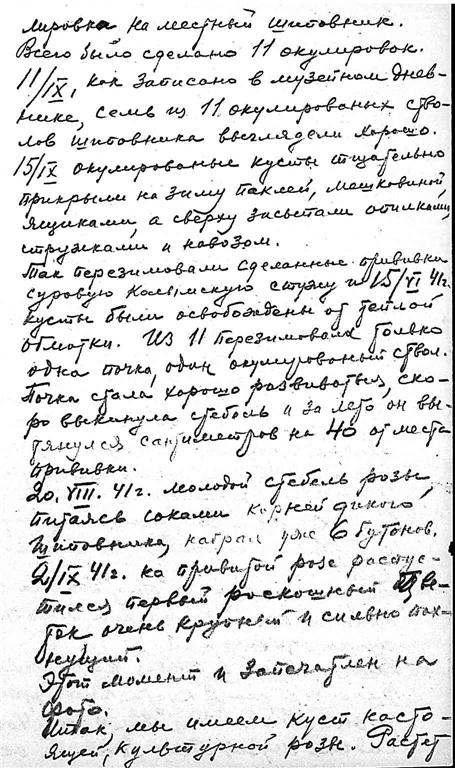 лировка на местный шиповник.
Всего было сделано 11 окулировок.
11/IX, как записано в музейном днев-
нике, семь из 11 окулированых ство-
лов шиповника выглядели хорошо.
15/IX окулированые кусты тщательно
прикрыли на зиму паклей, мешковиной,
ящиками, а сверху засыпали опилками,
стружками и навозом.
Так перезимовали сделанные прививки
суровую Колымскую стужу и 15/VI 41г.
кусты были освобождены от теплой
обмотки. Из 11 перезимовала только
одна почка, один окулированый ствол.
Почка стала хорошо развиваться, ско-
ро выкинула стебель и за лето он вы-
тянулся сантиметров на 40 от места
прививки.
20.VIII.41г. молодой стебель розы,
питаясь соками корней дикого
шиповника, набрал уже 6 бутонов.
2/IX 41г. на привитой розе распус-
тился первый роскошный цве-
ток очень крупный и сильно пах-
нущий.
Этот момент и запечатлен на
фото.
Итак, мы имеем куст насто-
ящей, культурной розы. Растет